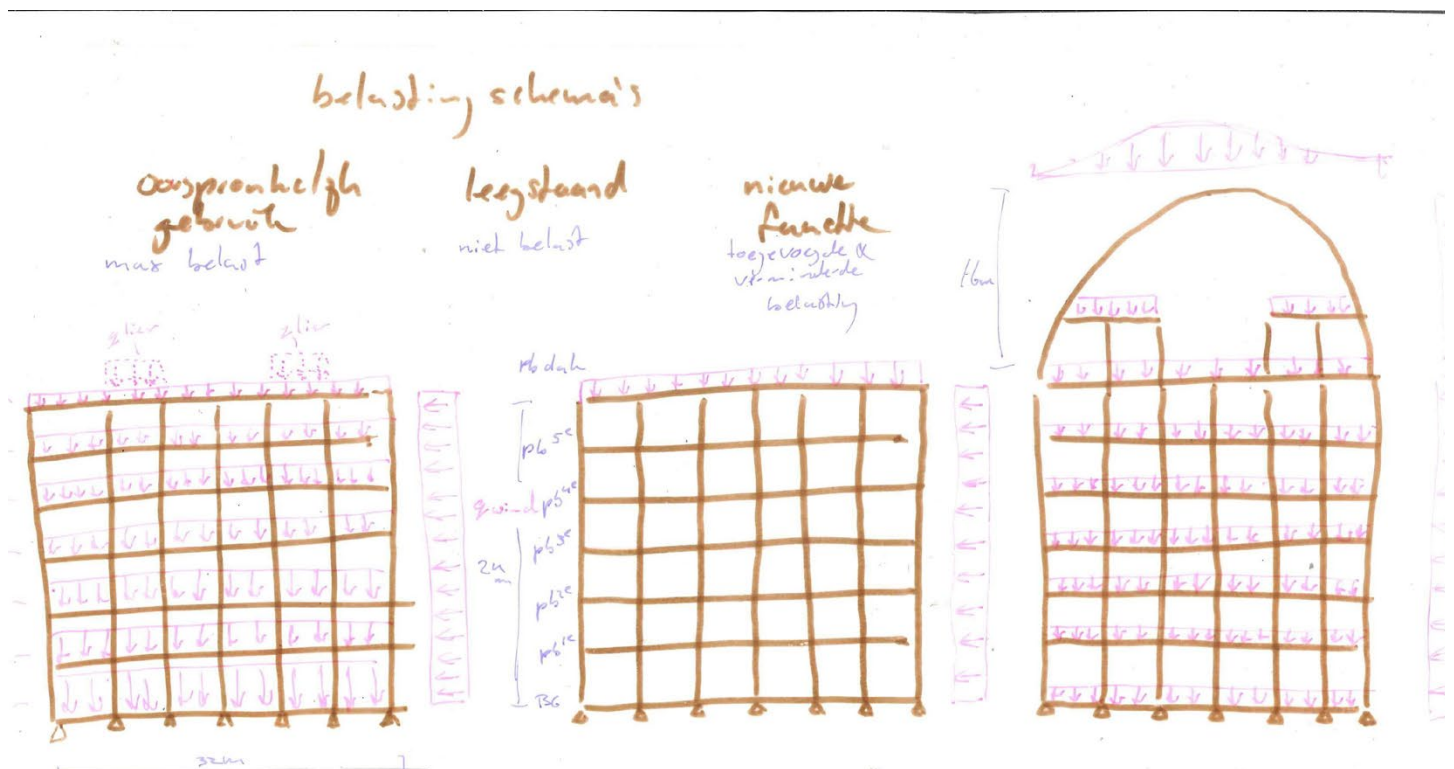 belasting schema's
oorspronkelijk
gebruik
max belast
leegstaand
niet belast
nieuwe
functie
toegevoegde &
verminderde
belasting
16m
q lier
q lier
pb dak
pb 5e
q wind
pb 4e
pb 3e
pb 2e
pb 1e
BG
32m